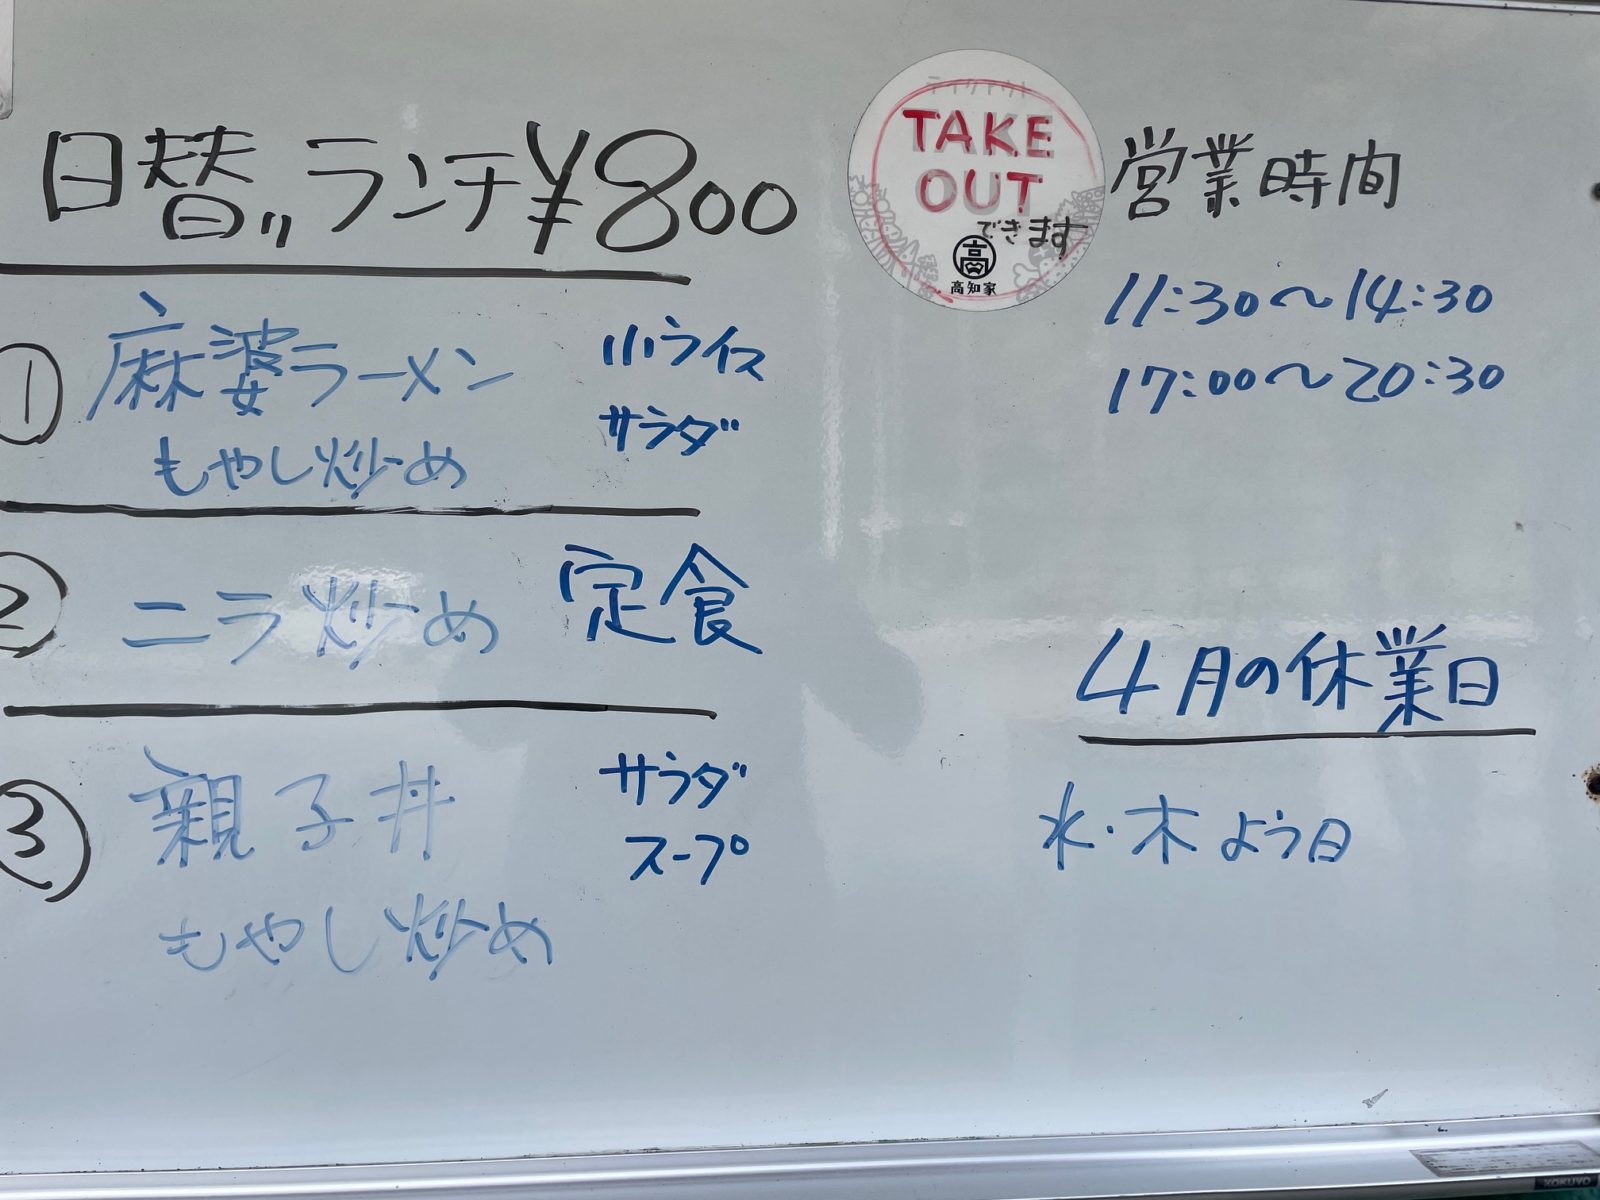 日替わりランチ¥800
① 麻婆ラーメン 小ライス
もやし炒め サラダ
② ニラ炒め 定食
③ 親子丼 サラダ
スープ
もやし炒め
テイクアウト
TAKE
OUT
できます
高
高知家
営業時間
11:30〜14:30
17:00〜20:30
4月の休業日
水・木よう日
KOKUYO